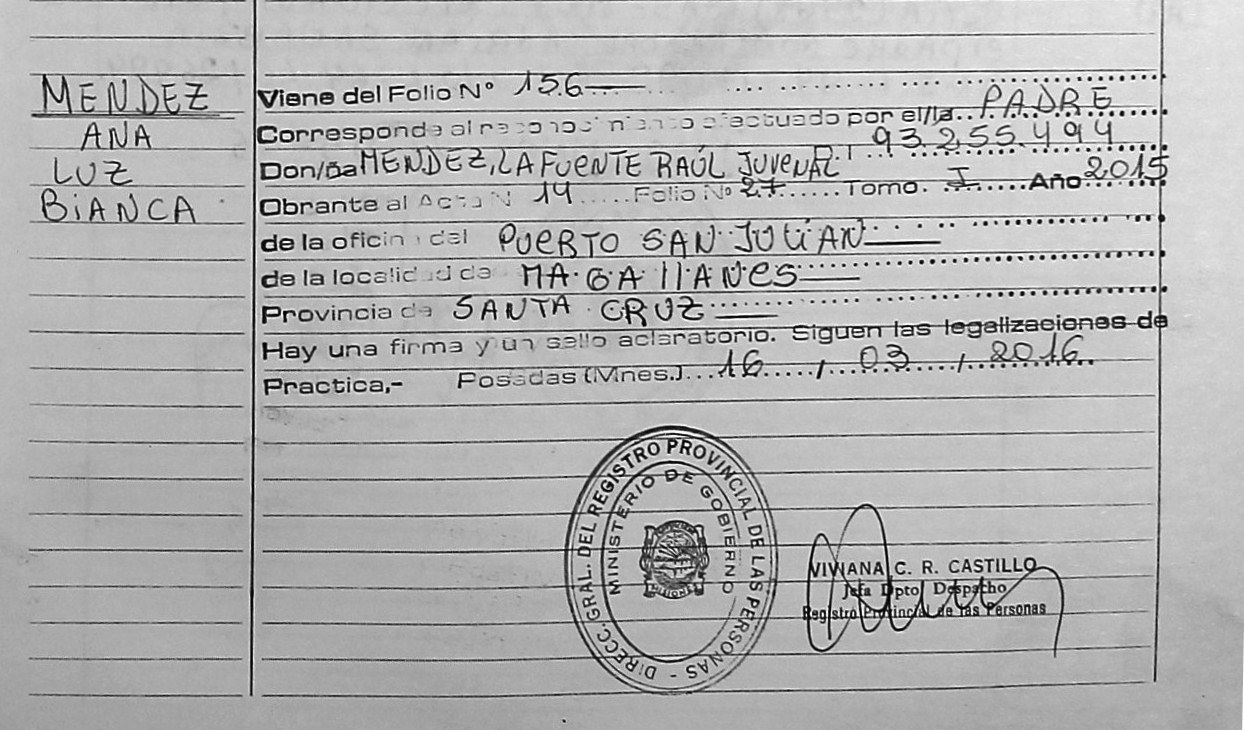 MENDEZ
ANA
LUZ
BiANCA
Viene del Folio Nº 156
Corresponde al reconocimiento efectuado por el/la PADRE
Don/ña MENDEZ, LAFUENTE RAÚL JUVENAL D.I 93.255.494
Obrante al Acta Nº 14 Folio Nº 27 Tomo. I Año 2015
de la oficina del PUERTO SAN JULIAN
de la localidad de MAGAllANES
Provincia de SANTA CRUZ
Hay una firma y un sello aclaratorio. Siguen las legalizaciones de
Practica,- Posadas (Mnes.) 16 / 03 / 2016
DIRECC. GRAL. DEL REGISTRO PROVINCIAL DE LAS PERSONAS -
MINISTERIO DE GOBIERNO
MISIONES
VIVIANA C. R. CASTILLO
Jefa Dpto. Despacho
Registro Provincial de las Personas